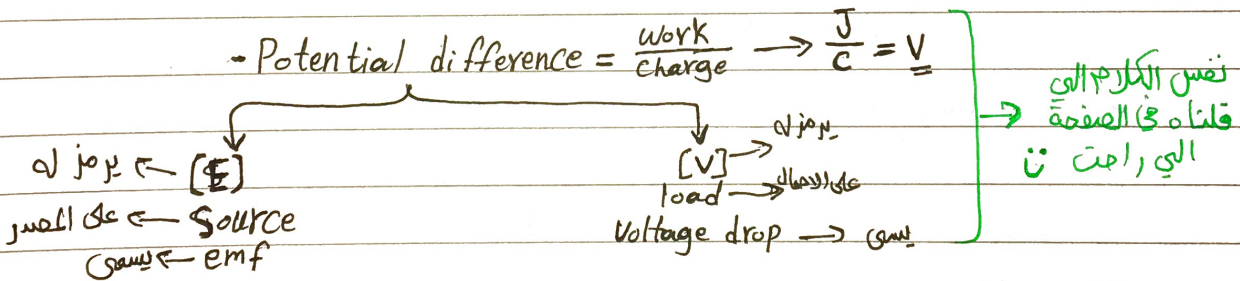 - Potential difference = work / charge → J / C = V
[E] ← يرمز له
Source ← على المصدر
emf ← يسمى
[V] → يرمز له
load → على الاحمال
Voltage drop → يسمى
نفس الكلام الي
قلناه في الصفحة
الي راحت ت